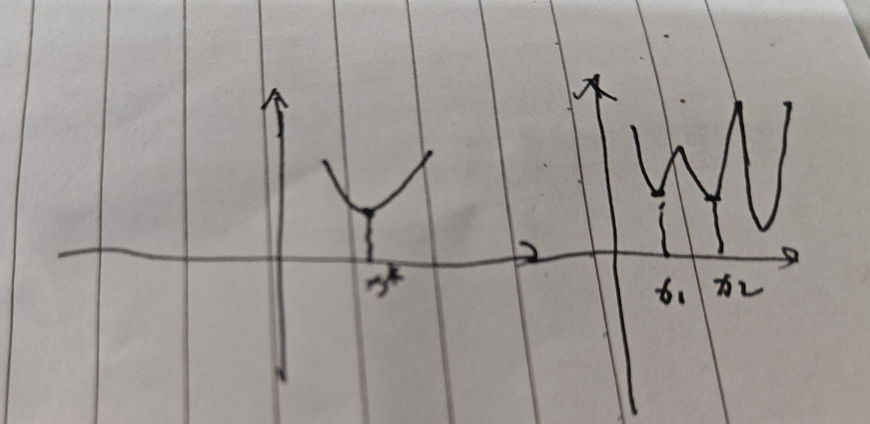 x*
x₁ x₂